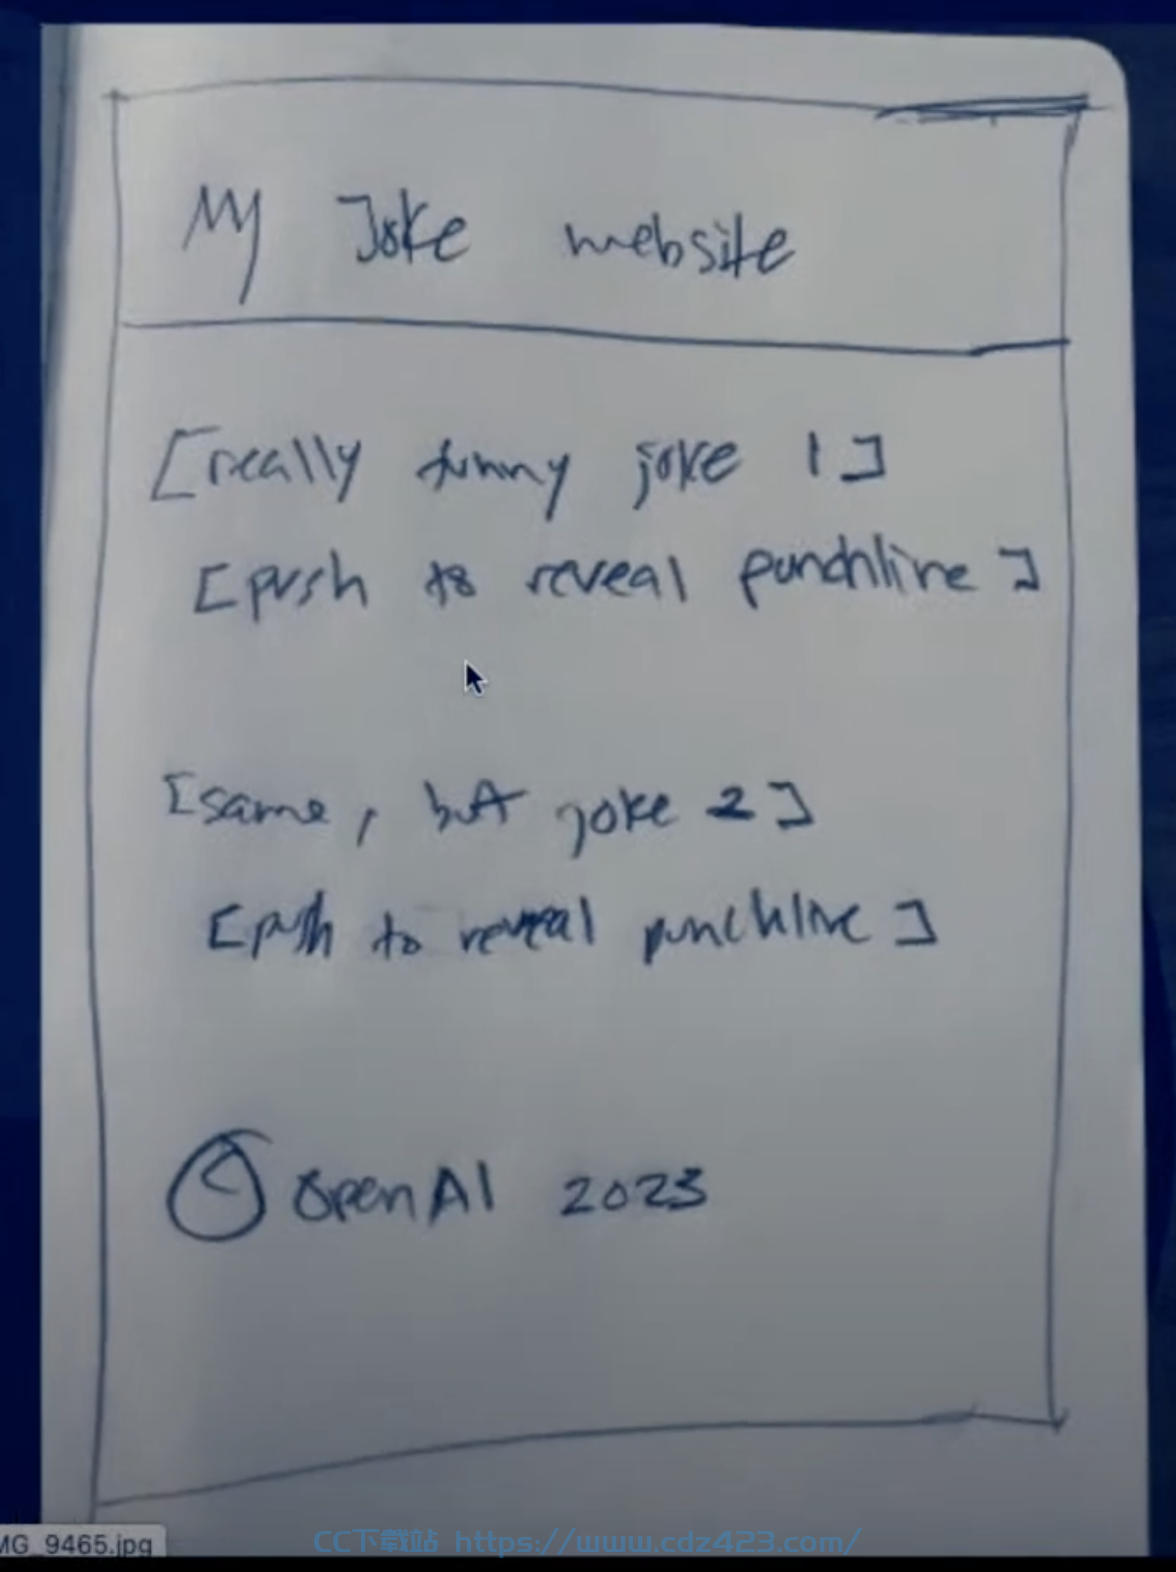 My Joke website
[really funny joke 1]
[push to reveal punchline]
[same, but joke 2]
[push to reveal punchline]
© OpenAI 2023
MG_9465.jpg
CC下载站 https://www.cdz423.com/